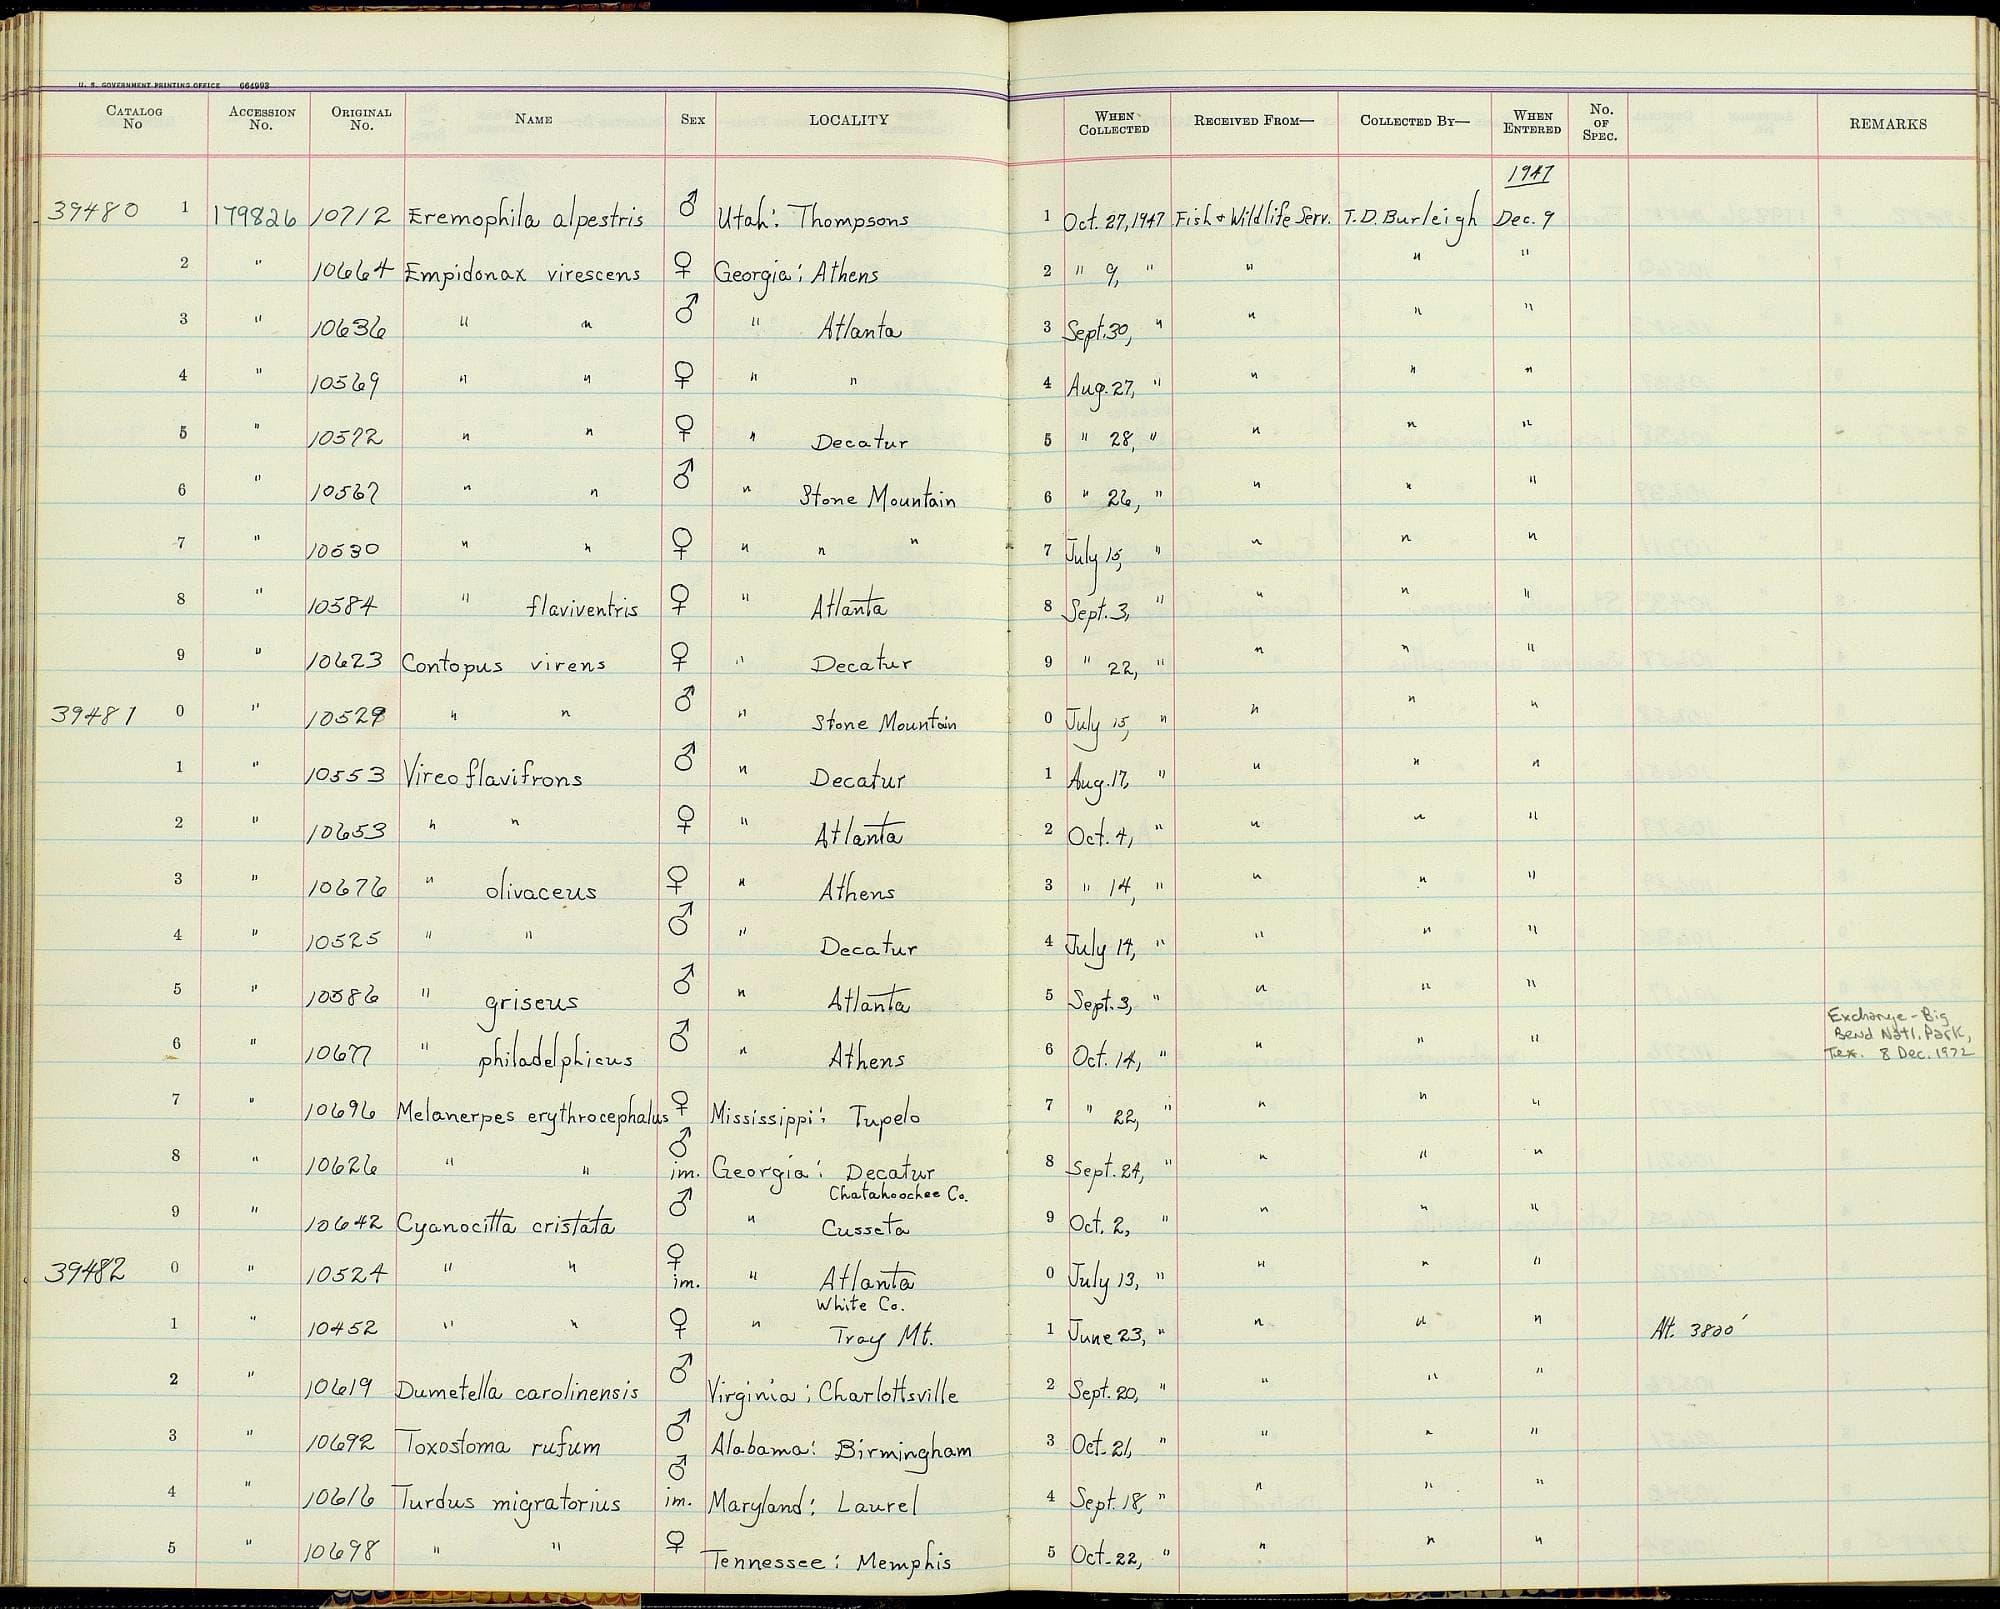 U. S. GOVERNMENT PRINTING OFFICE 664993
CATALOG No ACCESSION No. ORIGINAL No. NAME SEX LOCALITY WHEN COLLECTED RECEIVED FROM— COLLECTED BY— WHEN ENTERED No. OF SPEC. REMARKS
1947
39480 1 179826 10712 Eremophila alpestris ♂ Utah: Thompsons 1 Oct. 27, 1947 Fish & Wildlife Serv. T.D. Burleigh Dec. 9
2 " 10664 Empidonax virescens ♀ Georgia: Athens 2 " 9, " " " "
3 " 10636 " " ♂ " Atlanta 3 Sept. 30, " " " "
4 " 10569 " " ♀ " " 4 Aug. 27, " " " "
5 " 10572 " " ♀ " Decatur 5 " 28, " " " "
6 " 10567 " " ♂ " Stone Mountain 6 " 26, " " " "
7 " 10530 " " ♀ " " " 7 July 15, " " " "
8 " 10584 " flaviventris ♀ " Atlanta 8 Sept. 3, " " " "
9 " 10623 Contopus virens ♀ " Decatur 9 " 22, " " " "
39481 0 " 10529 " " ♂ " Stone Mountain 0 July 15, " " " "
1 " 10553 Vireo flavifrons ♂ " Decatur 1 Aug. 17, " " " "
2 " 10653 " " ♀ " Atlanta 2 Oct. 4, " " " "
3 " 10676 " olivaceus ♀ " Athens 3 " 14, " " " "
4 " 10525 " " ♂ " Decatur 4 July 14, " " " "
5 " 10586 " griseus ♂ " Atlanta 5 Sept. 3, " " " "
Exchange - Big
Bend Natl. Park,
Tex. 8 Dec. 1972
6 " 10677 " philadelphicus ♂ " Athens 6 Oct. 14, " " " "
7 " 10696 Melanerpes erythrocephalus ♀ Mississippi: Tupelo 7 " 22, " " " "
8 " 10626 " " ♂ im. Georgia: Decatur 8 Sept. 24, " " " "
Chatahoochee Co.
9 " 10642 Cyanocitta cristata ♂ " Cusseta 9 Oct. 2, " " " "
39482 0 " 10524 " " ♀ im. " Atlanta 0 July 13, " " " "
White Co.
1 " 10452 " " ♀ " Tray Mt. 1 June 23, " " " " Alt. 3800'
2 " 10619 Dumetella carolinensis ♂ Virginia: Charlottsville 2 Sept. 20, " " " "
3 " 10692 Toxostoma rufum ♂ Alabama: Birmingham 3 Oct. 21, " " " "
4 " 10616 Turdus migratorius ♂ im. Maryland: Laurel 4 Sept. 18, " " " "
5 " 10698 " " ♀ Tennessee: Memphis 5 Oct. 22, " " " "